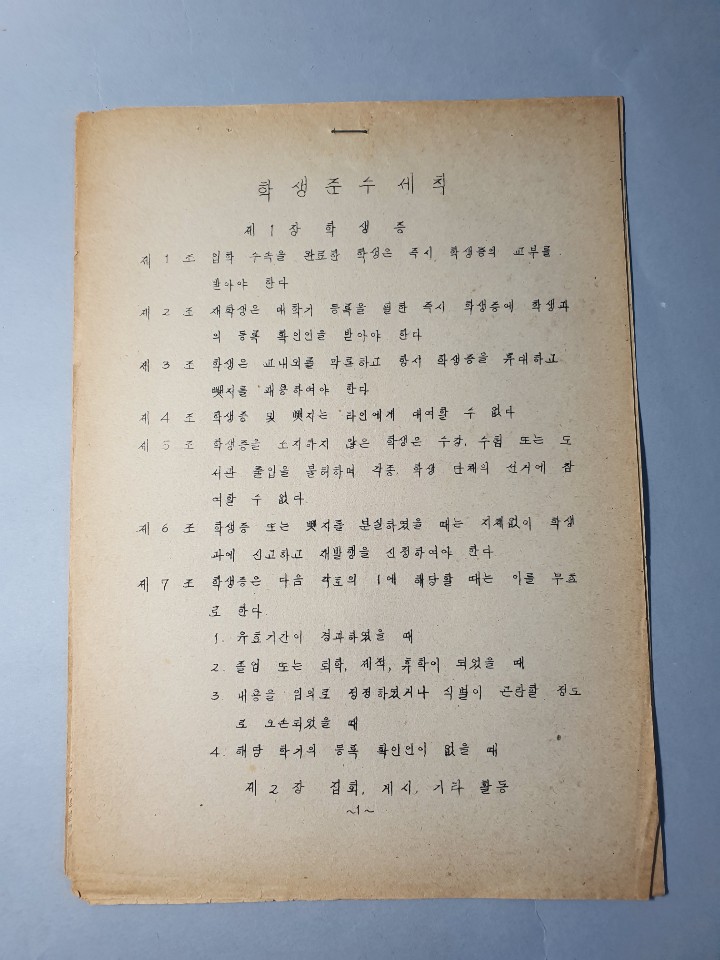 학생준수세칙
제 1 장 학 생 증
제 1 조 입학 수속을 완료한 학생은 즉시 학생증의 교부를
받아야 한다
제 2 조 재학생은 매학기 등록을 필한 즉시 학생증에 학생과
의 등록 확인인을 받아야 한다
제 3 조 학생은 교내외를 막론하고 항시 학생증을 휴대하고
뺏지를 패용하여야 한다
제 4 조 학생증 및 뺏지는 타인에게 대여할 수 없다
제 5 조 학생증을 소지하지 않은 학생은 수강, 수험 또는 도
서관 출입을 불허하며 각종 학생 단체의 선거에 참
여할 수 없다.
제 6 조 학생증 또는 뺏지를 분실하였을 때는 지체없이 학생
과에 신고하고 재발행을 신청하여야 한다
제 7 조 학생증은 다음 각호의 1에 해당할 때는 이를 무효
로 한다.
1. 유효기간이 경과하였을 때
2. 졸업 또는 퇴학, 제적, 휴학이 되었을 때
3. 내용을 임의로 정정하였거나 식별이 곤란할 정도
로 오손되었을 때
4. 해당 학기의 등록 확인인이 없을 때
제 2 장 집회, 게시, 기타 활동
~1~